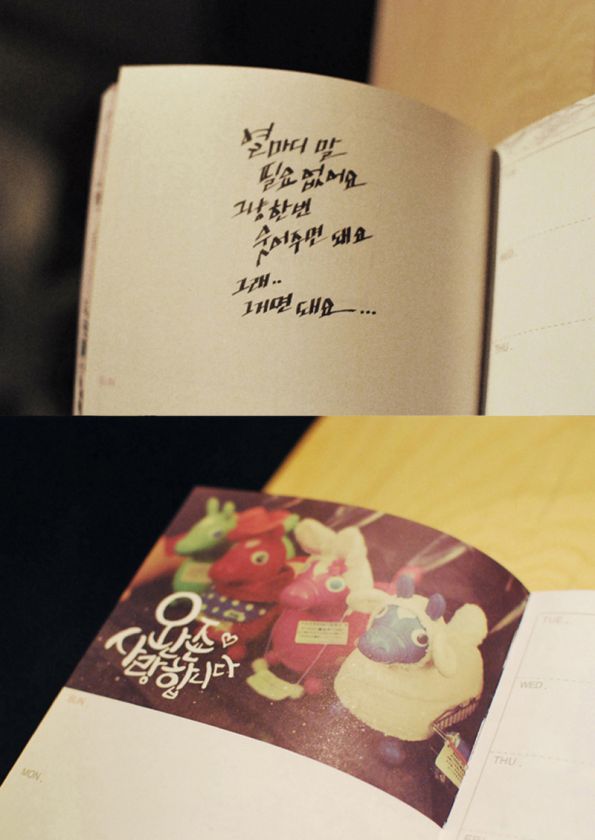 열마디 말
필요 없어요
그냥 한번
웃어주면 돼요
그래..
그거면 돼요...
SUN.
WED.
THU.
사랑합니다
SUN.
MON.
TUE.
WED.
THU.